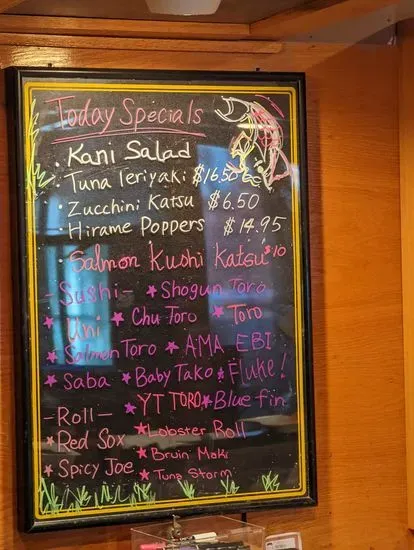 Today Specials
· Kani Salad
· Tuna Teriyaki $16.50
· Zucchini Katsu $6.50
· Hirame Poppers $14.95
· Salmon Kushi Katsu $10
- Sushi - ★ Shogun Toro
★ Uni ★ Chu Toro ★ Toro
★ Salmon Toro ★ AMA EBI
★ Saba ★ Baby Tako ★ Fluke!
- Roll - ★ YT TORO ★ Blue fin
★ Red Sox ★ Lobster Roll
★ Spicy Joe ★ Bruin Maki
★ Tuna Storm